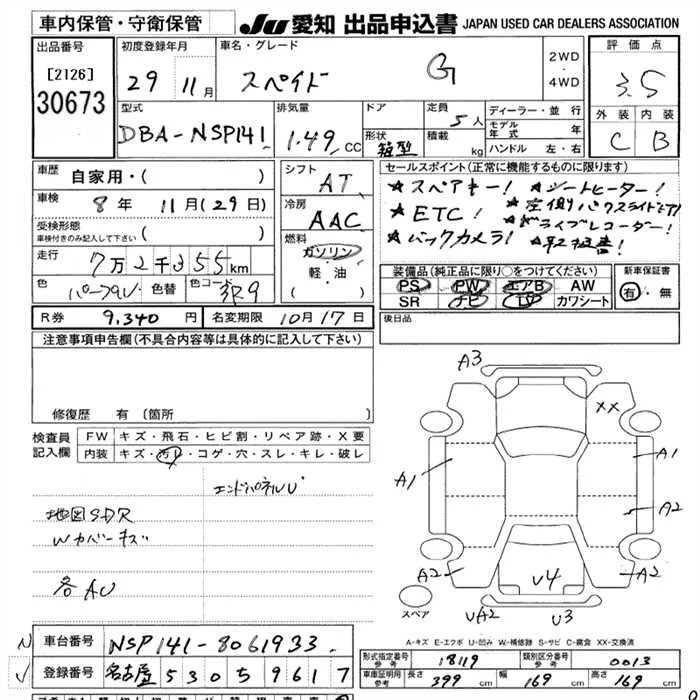 車内保管・守衛保管
JU 愛知 出品申込書 JAPAN USED CAR DEALERS ASSOCIATION
出品番号 初度登録年月 車名・グレード 2WD 評価点
[2126] 29年 11月 スペイド G 4WD 3.5
30673
型式 排気量 ドア 定員 ディーラー・並行 外装 内装
DBA-NSP141 1.49 CC 5人 モデル年式 年 C B
形状 箱型 積載 kg ハンドル 左・右
車歴 自家用・( ) シフト AT セールスポイント(正常に機能するものに限ります)
車検 8年 11月(29日) 冷房 AAC ★スペアキー! ★シートヒーター!
受検形態 ★ETC! ★左側パワスライドドア!
車検付きのみ記入して下さい ( ) 燃料 ★ドライブレコーダー!
走行 7万2千355km ガソリン ★バックカメラ!
軽・油
( )
色 パープル 色替 色コード 3R9
装備品(純正品に限り○をつけてください) 新車保証書
PS PW エアB AW 有・無
SR ナビ TV カワシート
R券 9,340円 名変期限 10月17日 後日品
注意事項申告欄(不具合内容等は具体的に記入して下さい)
修復歴 有 〔箇所
検査員記入欄 FW キズ・飛石・ヒビ割・リペア跡・X要
内装 キズ・汚レ・コゲ・穴・スレ・キレ・破レ
エンドパネルU
地図SDR
Wカバーキズ
各AU
A3
XX
A1
A1
A2
A2
U4
A2
スペア
UA2
U3
A-キズ E-エクボ U-凹み W-補修跡 S-サビ C-腐食 XX-交換済
車台番号 NSP141-8061933
登録番号 名古屋 530 5 9617
形式指定番号 参考 18119 類別区分番号 参考 0013
車庫証明用 参考 長さ 399 cm 幅 169 cm 高さ 169 cm